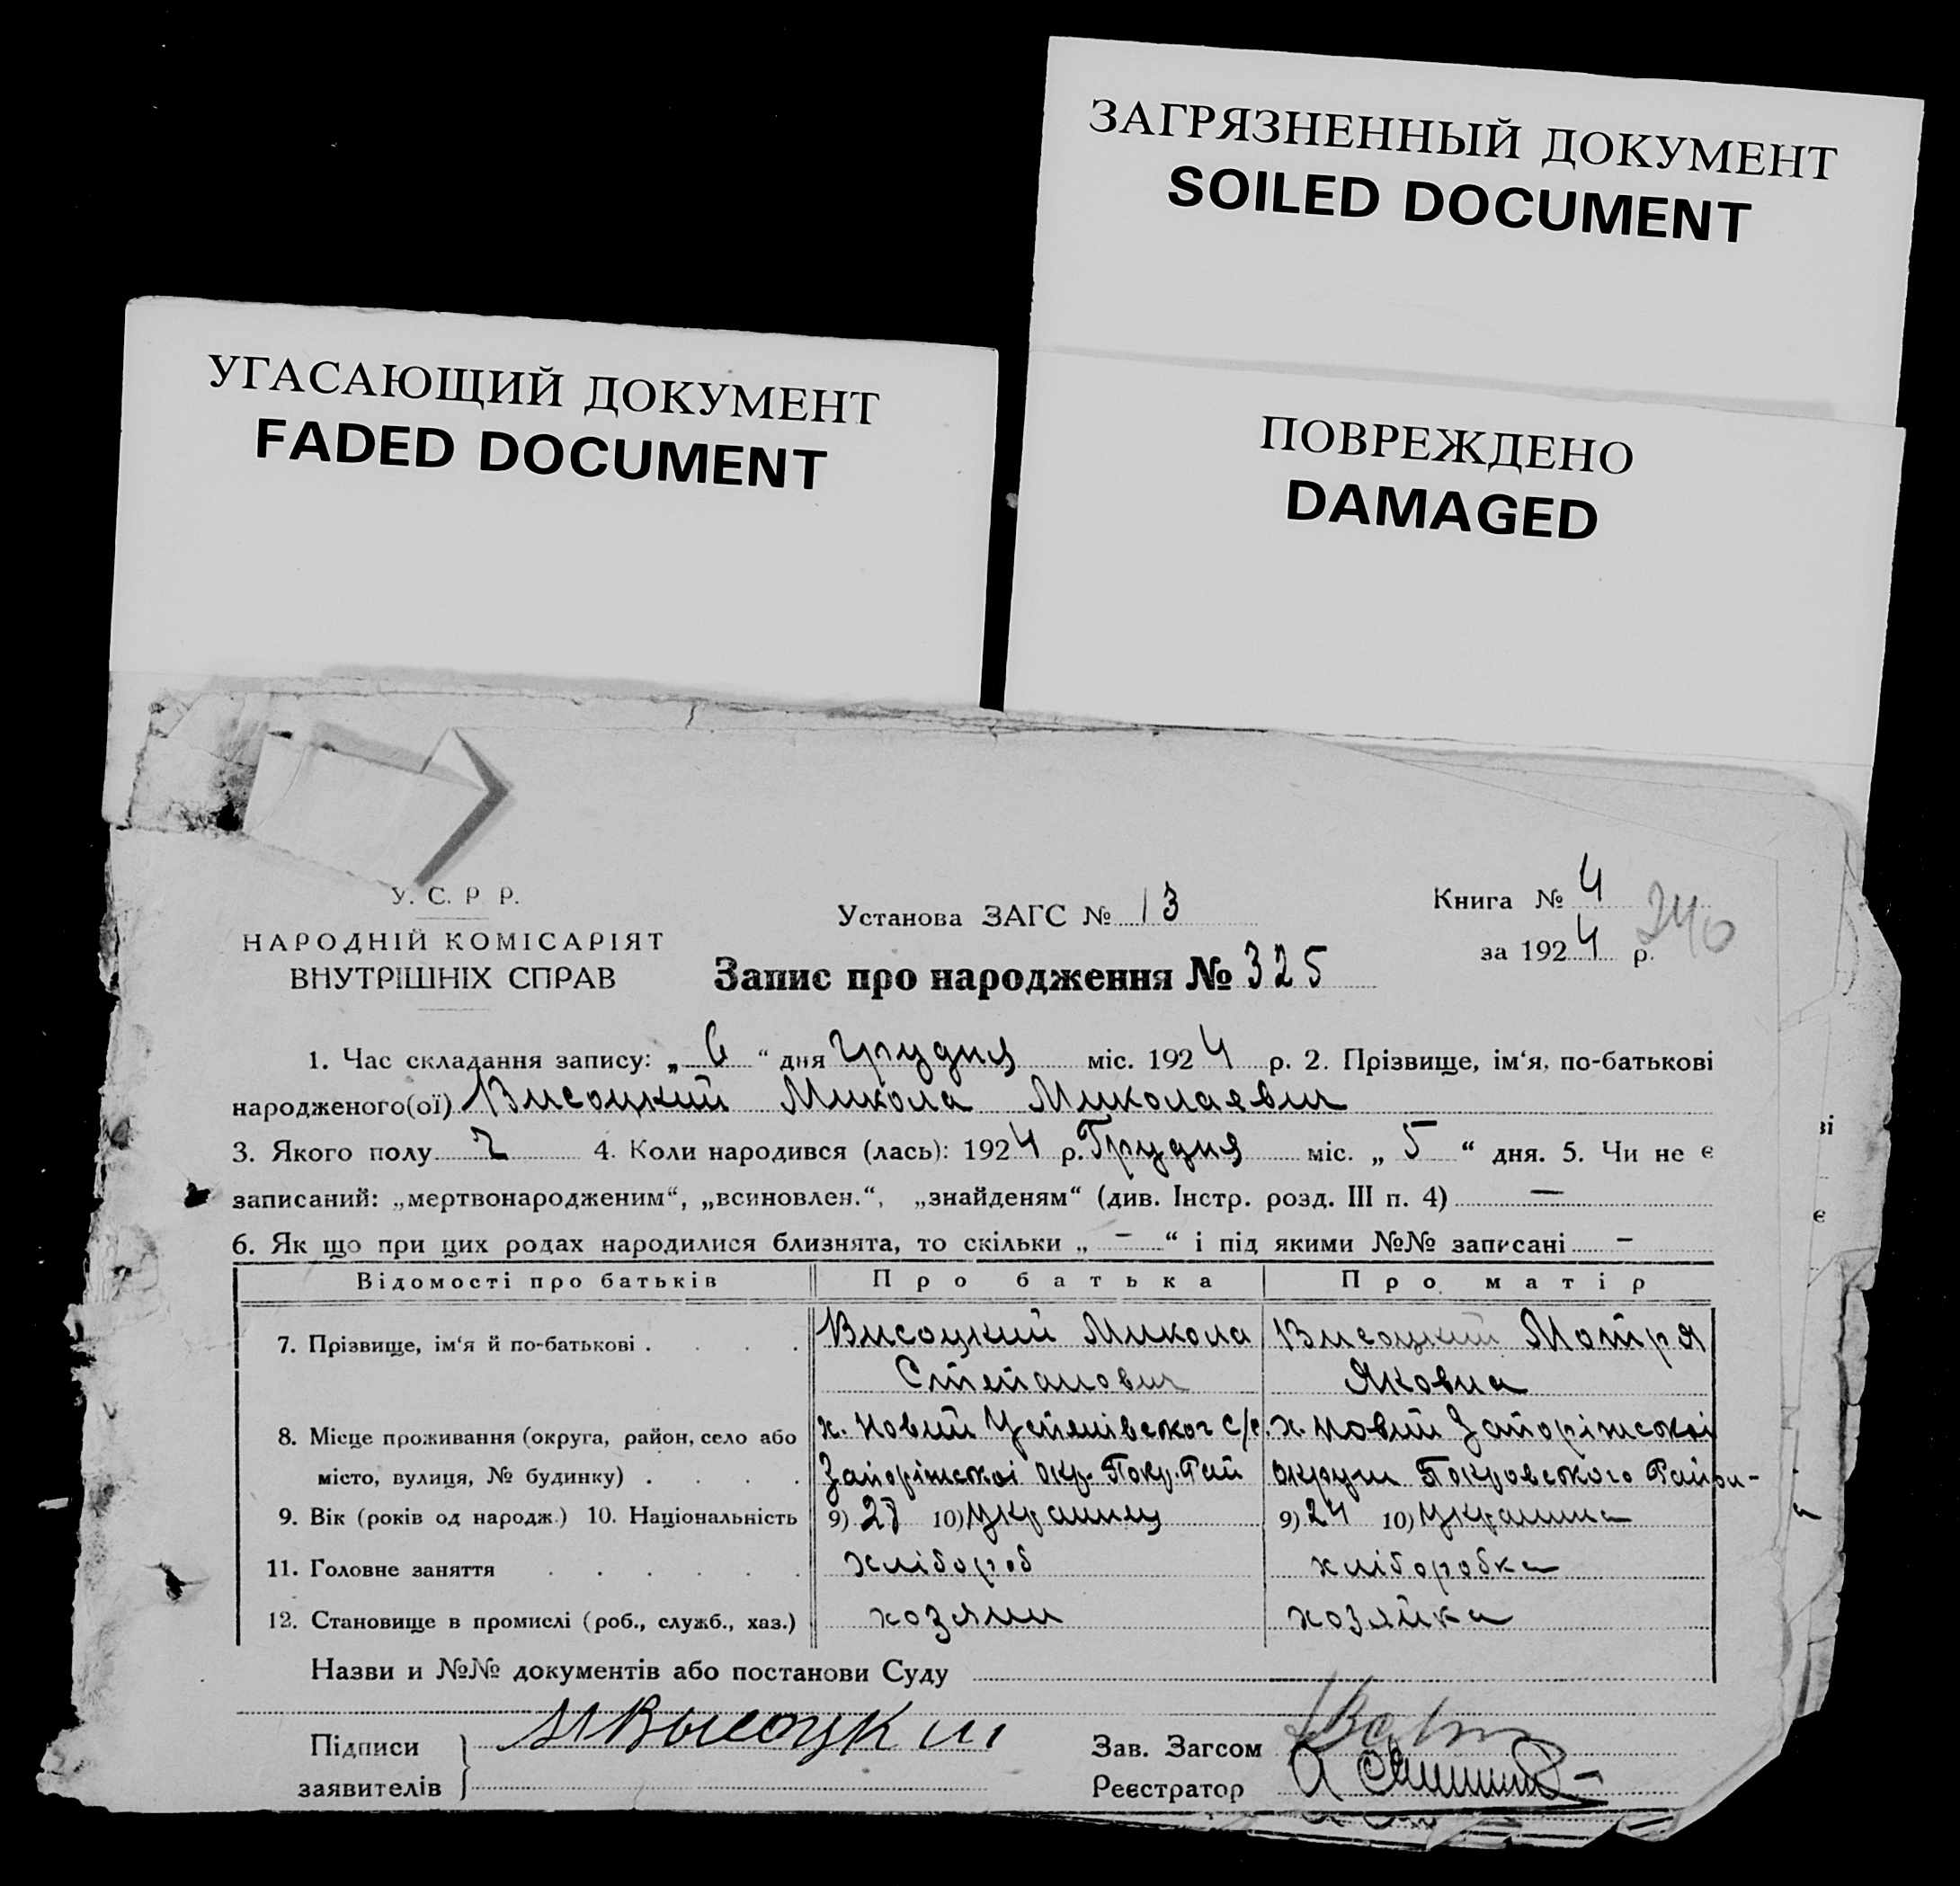 ЗАГРЯЗНЕННЫЙ ДОКУМЕНТ
SOILED DOCUMENT
УГАСАЮЩИЙ ДОКУМЕНТ
FADED DOCUMENT
ПОВРЕЖДЕНО
DAMAGED
У. С. Р Р.
НАРОДНІЙ КОМІСАРІЯТ
ВНУТРІШНІХ СПРАВ
Установа ЗАГС № 13
Книга № 4
240
за 1924 р.
Запис про народження № 325
1. Час складання запису: „ 6 “ дня грудня міс. 1924 р. 2. Прізвище, ім‘я, по-батькові
народженого(ої) Висоцкий Микола Миколаевич
3. Якого полу ч 4. Коли народився (лась): 1924 р. Грудня міс. „ 5 “ дня. 5. Чи не є
записаний: „мертвонародженим“, „всиновлен.“, „знайденям“ (див. Інстр. розд. III п. 4) —
6. Як що при цих родах народилися близнята, то скільки „ — “ і під якими №№ записані —
Відомості про батьків Про батька Про матір
7. Прізвище, ім‘я й по-батькові . . . . Висоцкий Микола Висоцкий Мотря
Степанович Яковна
8. Місце проживання (округа, район, село або х. Новий с/р. х. Новий Запоріжскоі
місто, вулиця, № будинку) . . . . Запоріжскоі окр. Покр. Рай округи Покровського Райои-
9. Вік (років од народж.) 10. Національність 9) 10) Украинец 9) 24 10) Украинка
11. Головне заняття . . . . . . хлібороб хліборобка
12. Становище в промислі (роб., служб., хаз.) хозяин хозяйка
Назви и №№ документів або постанови Суду
Підписи Н Высоцкий Зав. Загсом
заявителів Реєстратор